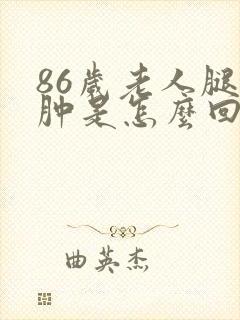 86歲老人腿
肿是怎麽回
曲英杰